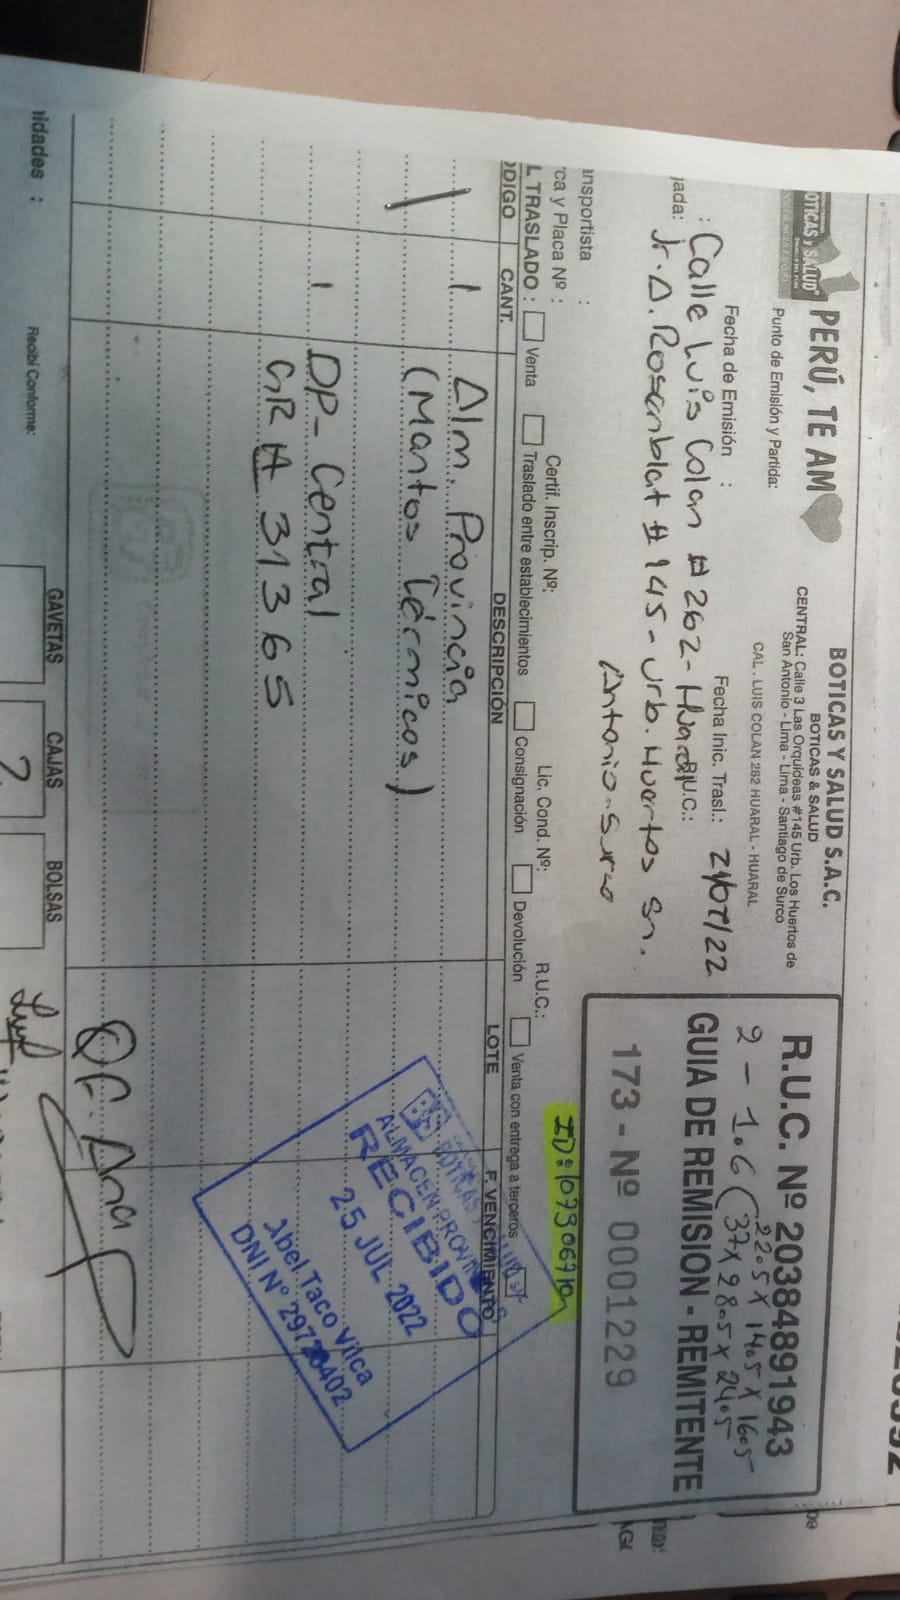 BOTICAS Y SALUD
PERÚ, TE AM
BOTICAS Y SALUD S.A.C.
BOTICAS & SALUD
CENTRAL: Calle 3 Las Orquídeas #145 Urb. Los Huertos de
San Antonio - Lima - Lima - Santiago de Surco
Punto de Emisión y Partida:
CAL. LUIS COLAN 262 HUARAL - HUARAL
R.U.C. Nº 20384891943
2205 x 1405 x 1605
2 - 1.6 (37 x 2805 x 2405
GUIA DE REMISION - REMITENTE
173 - Nº 0001229
Fecha de Emisión :
Fecha Inic. Trasl.: 24/07/22
: Calle Luis Colan # 262 - Huaral
R.U.C.:
gada: Jr. A. Rosenblat # 145 - Urb. Huertos Sn.
Antonio - Surco
ID:
ansportista :
rca y Placa Nº :
Certif. Inscrip. Nº:
Lic. Cond. Nº:
R.U.C.:
L TRASLADO : Venta Traslado entre establecimientos Consignación Devolución Venta con entrega a terceros
ODIGO CANT. DESCRIPCIÓN LOTE F. VENCIMIENTO
1 Alm. Provincia
/ (Mantos Térmicos)
1 DP - Central
GR # 31365
BS BOTICAS
ALMACEN PROVINCIAS
RECIBIDO
25 JUL 2022
Abel Taco Vilca
QF. Ana
ildades :
Recibí Conforme:
GAVETAS CAJAS BOLSAS
2